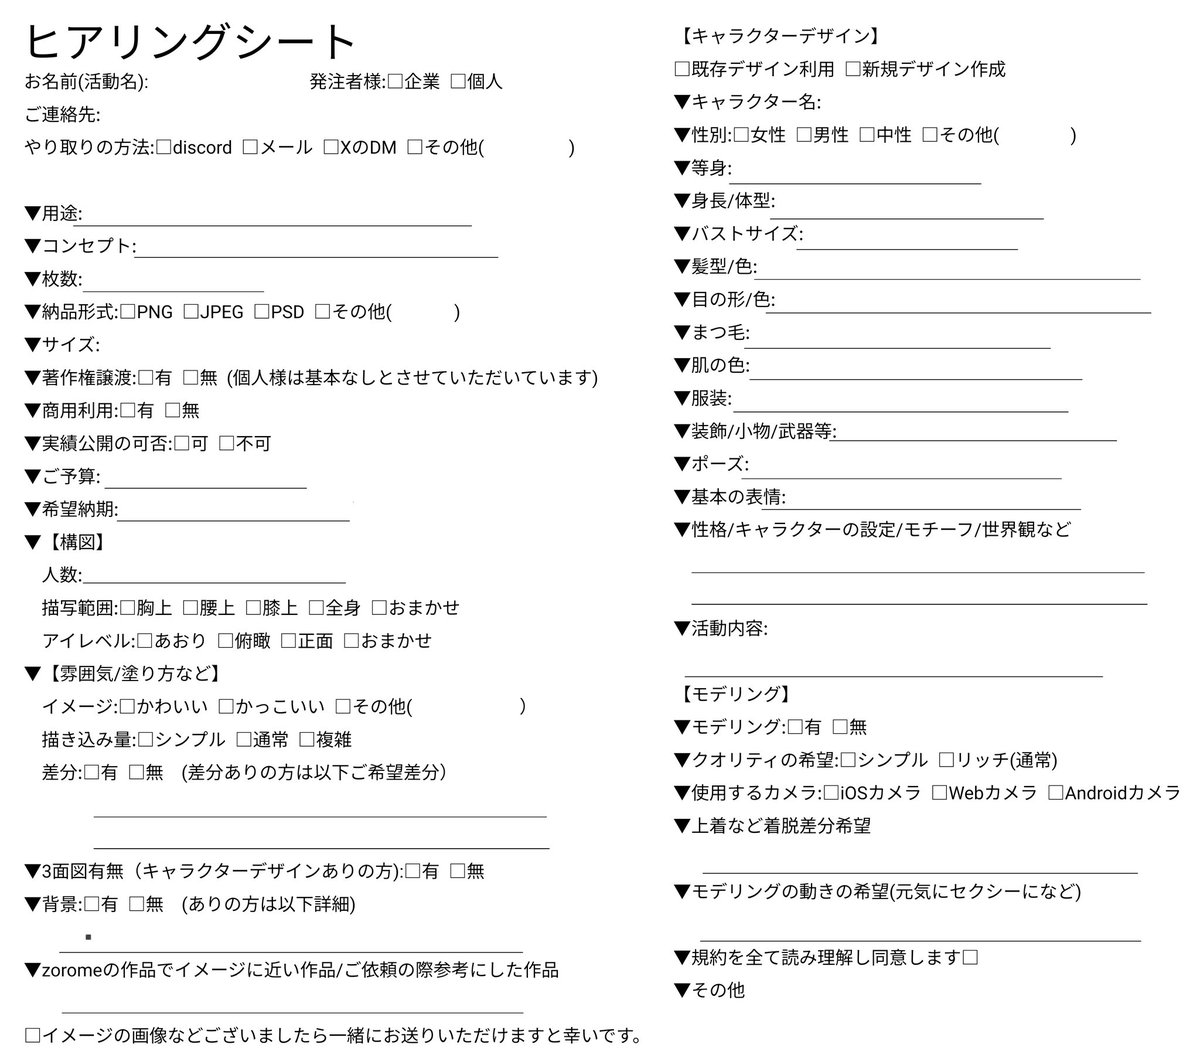 ヒアリングシート
お名前(活動名):　発注者様:□企業 □個人
ご連絡先:
やり取りの方法:□discord □メール □XのDM □その他(　)
▼用途:
▼コンセプト:
▼枚数:
▼納品形式:□PNG □JPEG □PSD □その他(　)
▼サイズ:
▼著作権譲渡:□有 □無 (個人様は基本なしとさせていただいています)
▼商用利用:□有 □無
▼実績公開の可否:□可 □不可
▼ご予算:
▼希望納期:
▼【構図】
人数:
描写範囲:□胸上 □腰上 □膝上 □全身 □おまかせ
アイレベル:□あおり □俯瞰 □正面 □おまかせ
▼【雰囲気/塗り方など】
イメージ:□かわいい □かっこいい □その他(　）
描き込み量:□シンプル □通常 □複雑
差分:□有 □無　(差分ありの方は以下ご希望差分）
▼3面図有無（キャラクターデザインありの方):□有 □無
▼背景:□有 □無　(ありの方は以下詳細)
▼zoromeの作品でイメージに近い作品/ご依頼の際参考にした作品
□イメージの画像などございましたら一緒にお送りいただけますと幸いです。
【キャラクターデザイン】
□既存デザイン利用 □新規デザイン作成
▼キャラクター名:
▼性別:□女性 □男性 □中性 □その他(　)
▼等身:
▼身長/体型:
▼バストサイズ:
▼髪型/色:
▼目の形/色:
▼まつ毛:
▼肌の色:
▼服装:
▼装飾/小物/武器等:
▼ポーズ:
▼基本の表情:
▼性格/キャラクターの設定/モチーフ/世界観など
▼活動内容:
【モデリング】
▼モデリング:□有 □無
▼クオリティの希望:□シンプル □リッチ(通常)
▼使用するカメラ:□iOSカメラ □Webカメラ □Androidカメラ
▼上着など着脱差分希望
▼モデリングの動きの希望(元気にセクシーになど)
▼規約を全て読み理解し同意します□
▼その他